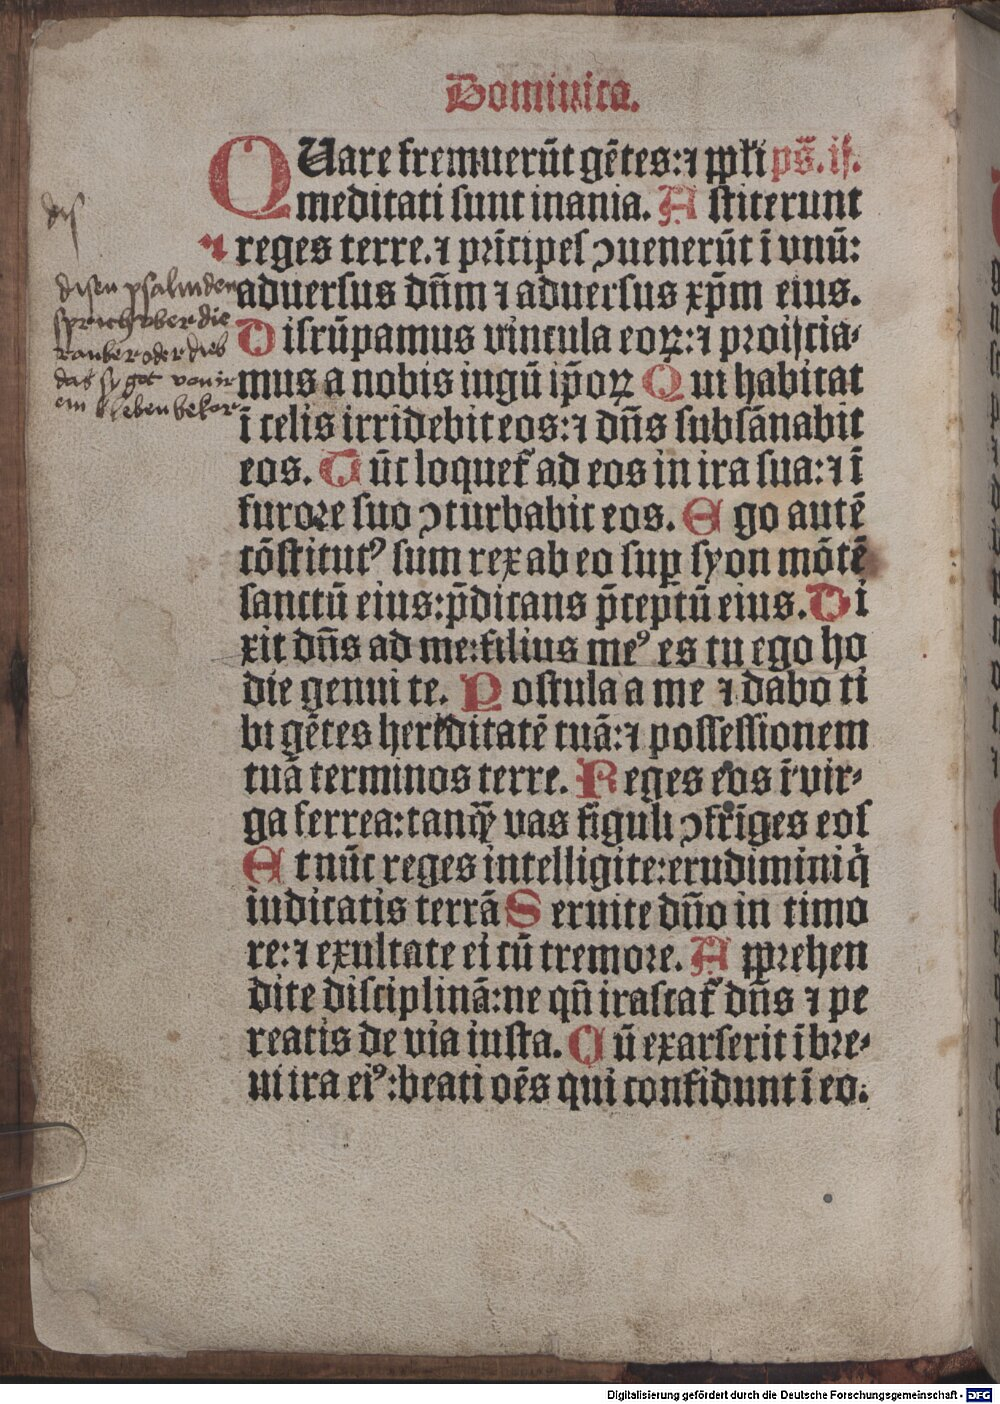 Dominica.
QUare fremuerūt gētes:⁊ ꝓpłi pš. ij.
meditati sunt inania. Astiterunt
reges terre.⁊ prīcipes ꝯuenerūt ī vnū:
aduersus dn̄m ⁊ aduersus xp̄m eius.
Disrūpamus vincula eoꝝ:⁊ proijcia⸗
mus a nobis iugū ip̄oꝝ Qui habitat
ī celis irridebit eos:⁊ dn̄s subsānabit
eos. Tūc loquet̄ ad eos in ira sua:⁊ ī
furore suo ꝯturbabit eos. Ego autē
cōstitutꝰ sum rex ab eo suꝑ syon mōtē
sanctū eius:p̄dicans p̄ceptū eius. Di
xit dn̄s ad me:filius meꝰ es tu ego ho
die genui te. Postula a me ⁊ dabo ti
bi gētes hereditatē tuā:⁊ possessionem
tuā terminos terre. Reges eos ī vir⸗
ga ferrea:tanqȝ vas figuli ꝯfrīges eos
Et nūc reges intelligite:erudimini q̄
iudicatis terrā Seruite dn̄o in timo
re:⁊ exultate ei cū tremore. Apprehen
dite disciplinā:ne qn̄ irascat̄ dn̄s ⁊ pe
reatis de via iusta. Cū exarserit ī bre⸗
ui ira eiꝰ:beati oēs qui confidunt ī eo.
disen psalm den
sprich vber die
rauber oder dieb
das sy got von ir
em leben beker
Digitalisierung gefördert durch die Deutsche Forschungsgemeinschaft - DFG